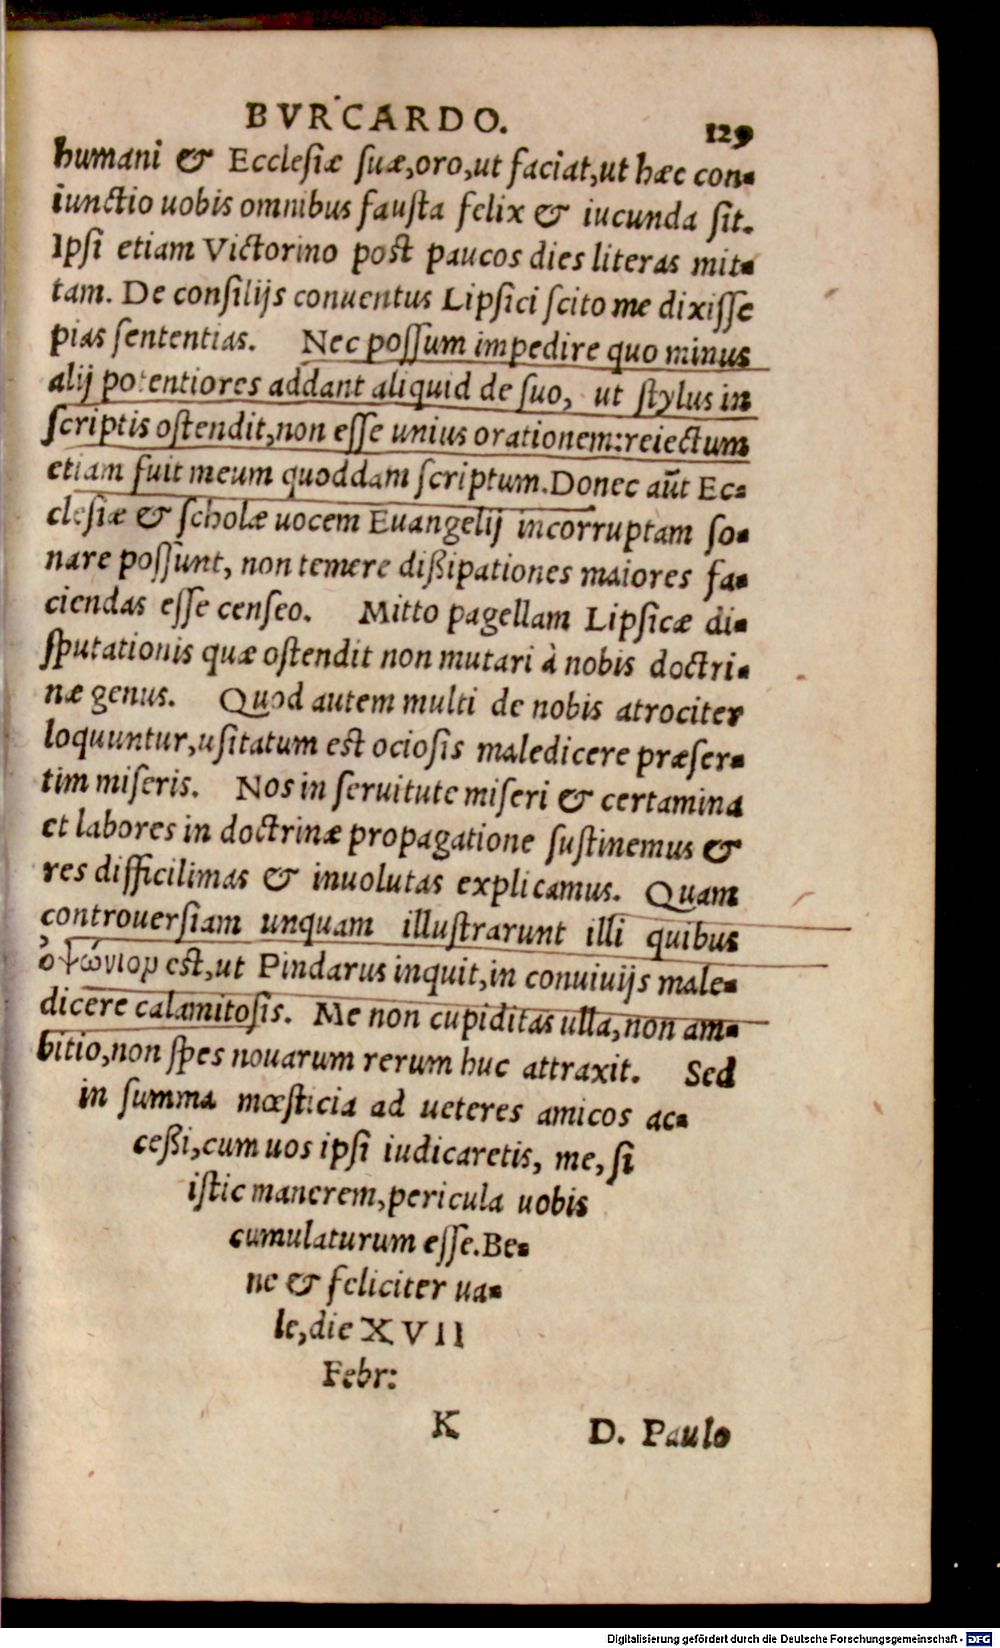 BVRCARDO. 129
humani & Ecclesiæ suæ,oro,ut faciat,ut hæc con-
iunctio uobis omnibus fausta felix & iucunda sit.
Ipsi etiam Victorino post paucos dies literas mit-
tam. De consilijs conuentus Lipsici scito me dixisse
pias sententias. Nec possum impedire quo minus
alij potentiores addant aliquid de suo, ut stylus in
scriptis ostendit,non esse unius orationem:reiectum
etiam fuit meum quoddam scriptum.Donec aūt Ec-
clesiæ & scholæ uocem Euangelij incorruptam so-
nare possunt, non temere dißipationes maiores fa-
ciendas esse censeo. Mitto pagellam Lipsicæ di-
sputationis quæ ostendit non mutari à nobis doctri-
næ genus. Quod autem multi de nobis atrociter
loquuntur,usitatum est ociosis maledicere præser-
tim miseris. Nos in seruitute miseri & certamina
et labores in doctrinæ propagatione sustinemus &
res difficilimas & inuolutas explicamus. Quam
controuersiam unquam illustrarunt illi quibus
ὀψώνιον est,ut Pindarus inquit,in conuiuijs male-
dicere calamitosis. Me non cupiditas ulla,non am-
bitio,non spes nouarum rerum huc attraxit. Sed
in summa mœsticia ad ueteres amicos ac-
ceßi,cum uos ipsi iudicaretis, me, si
istic manerem,pericula uobis
cumulaturum esse.Be-
ne & feliciter ua-
le,die XVII
Febr:
K D. Paulo
Digitalisierung gefördert durch die Deutsche Forschungsgemeinschaft - DFG